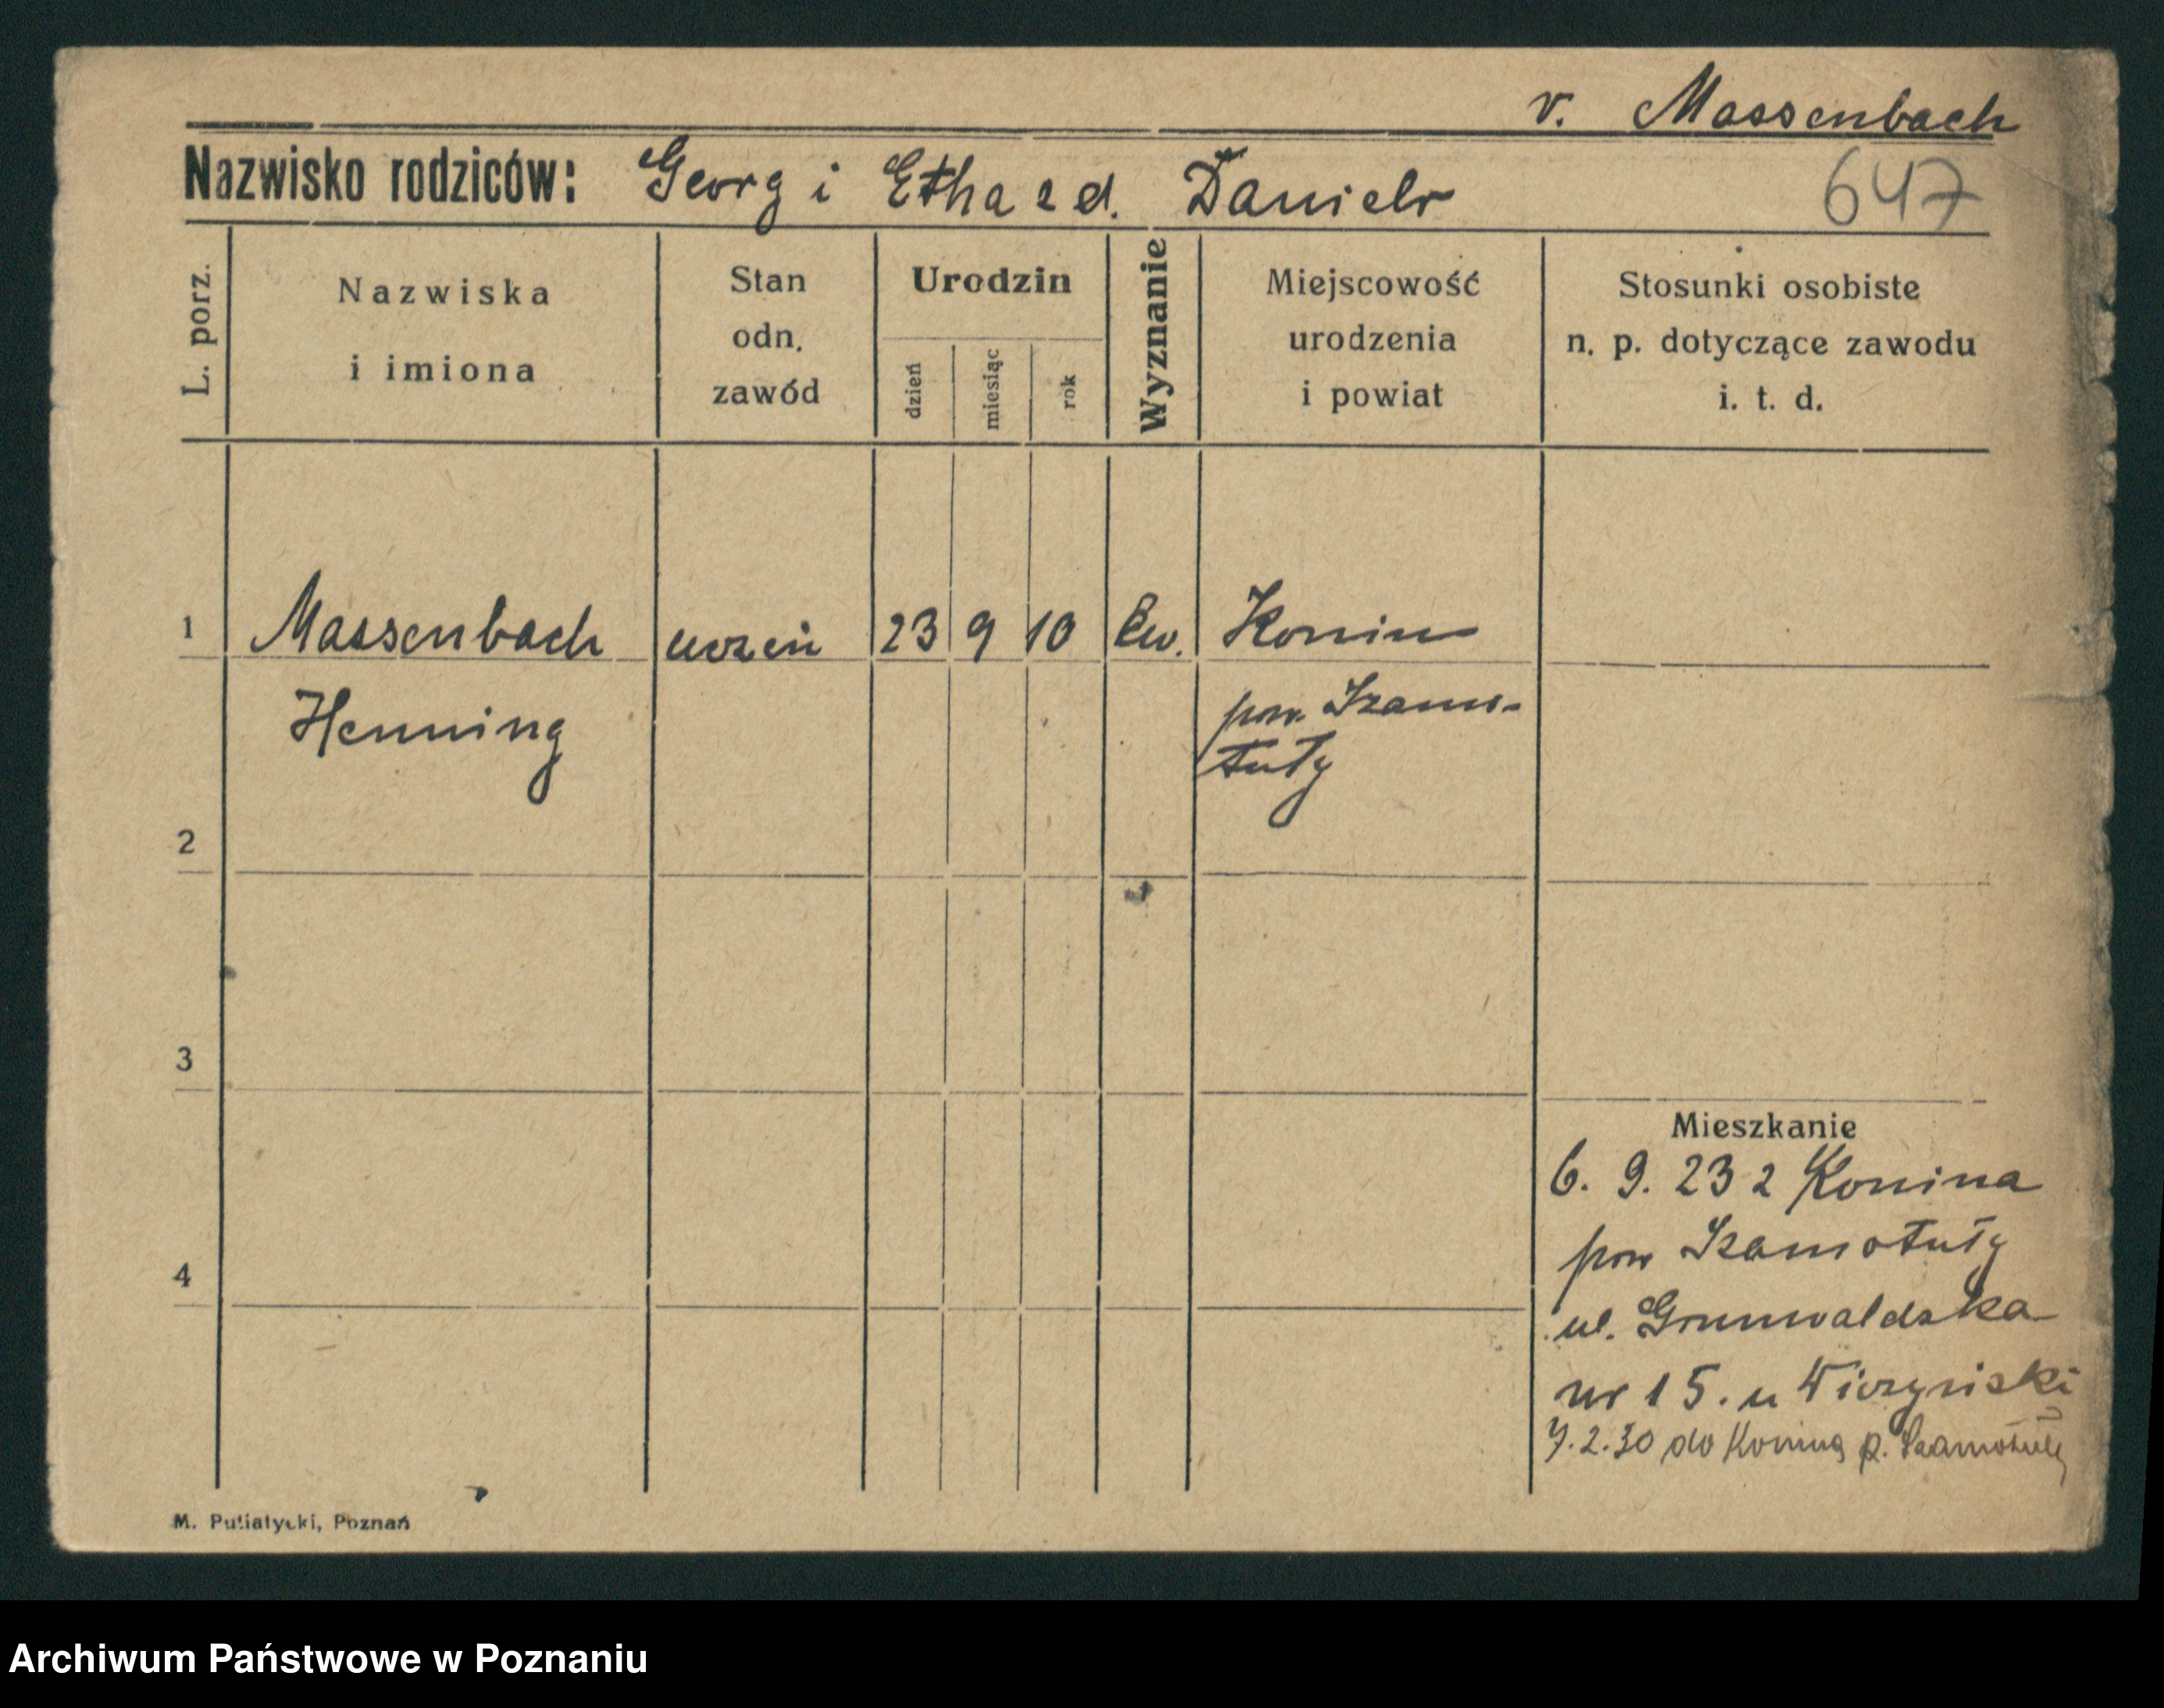 v. Massenbach
Nazwisko rodziców: Georg i Etha z d. Daniels
647
L. porz.
Nazwiska
i imiona
Stan
odn.
zawód
Urodzin
dzień
miesiąc
rok
Wyznanie
Miejscowość
urodzenia
i powiat
Stosunki osobiste
n. p. dotyczące zawodu
i. t. d.
1 Massenbach uczeń 23 9 10 Ew. Konin
Henning pow. Szamo-
tuły
2
3
Mieszkanie
6. 9. 23 z Konina
pow Szamotuły
4
ul. Grunwaldska
nr 15. u
2.30 do Konina p. Szamotuły
M. Putiatycki, Poznań
Archiwum Państwowe w Poznaniu